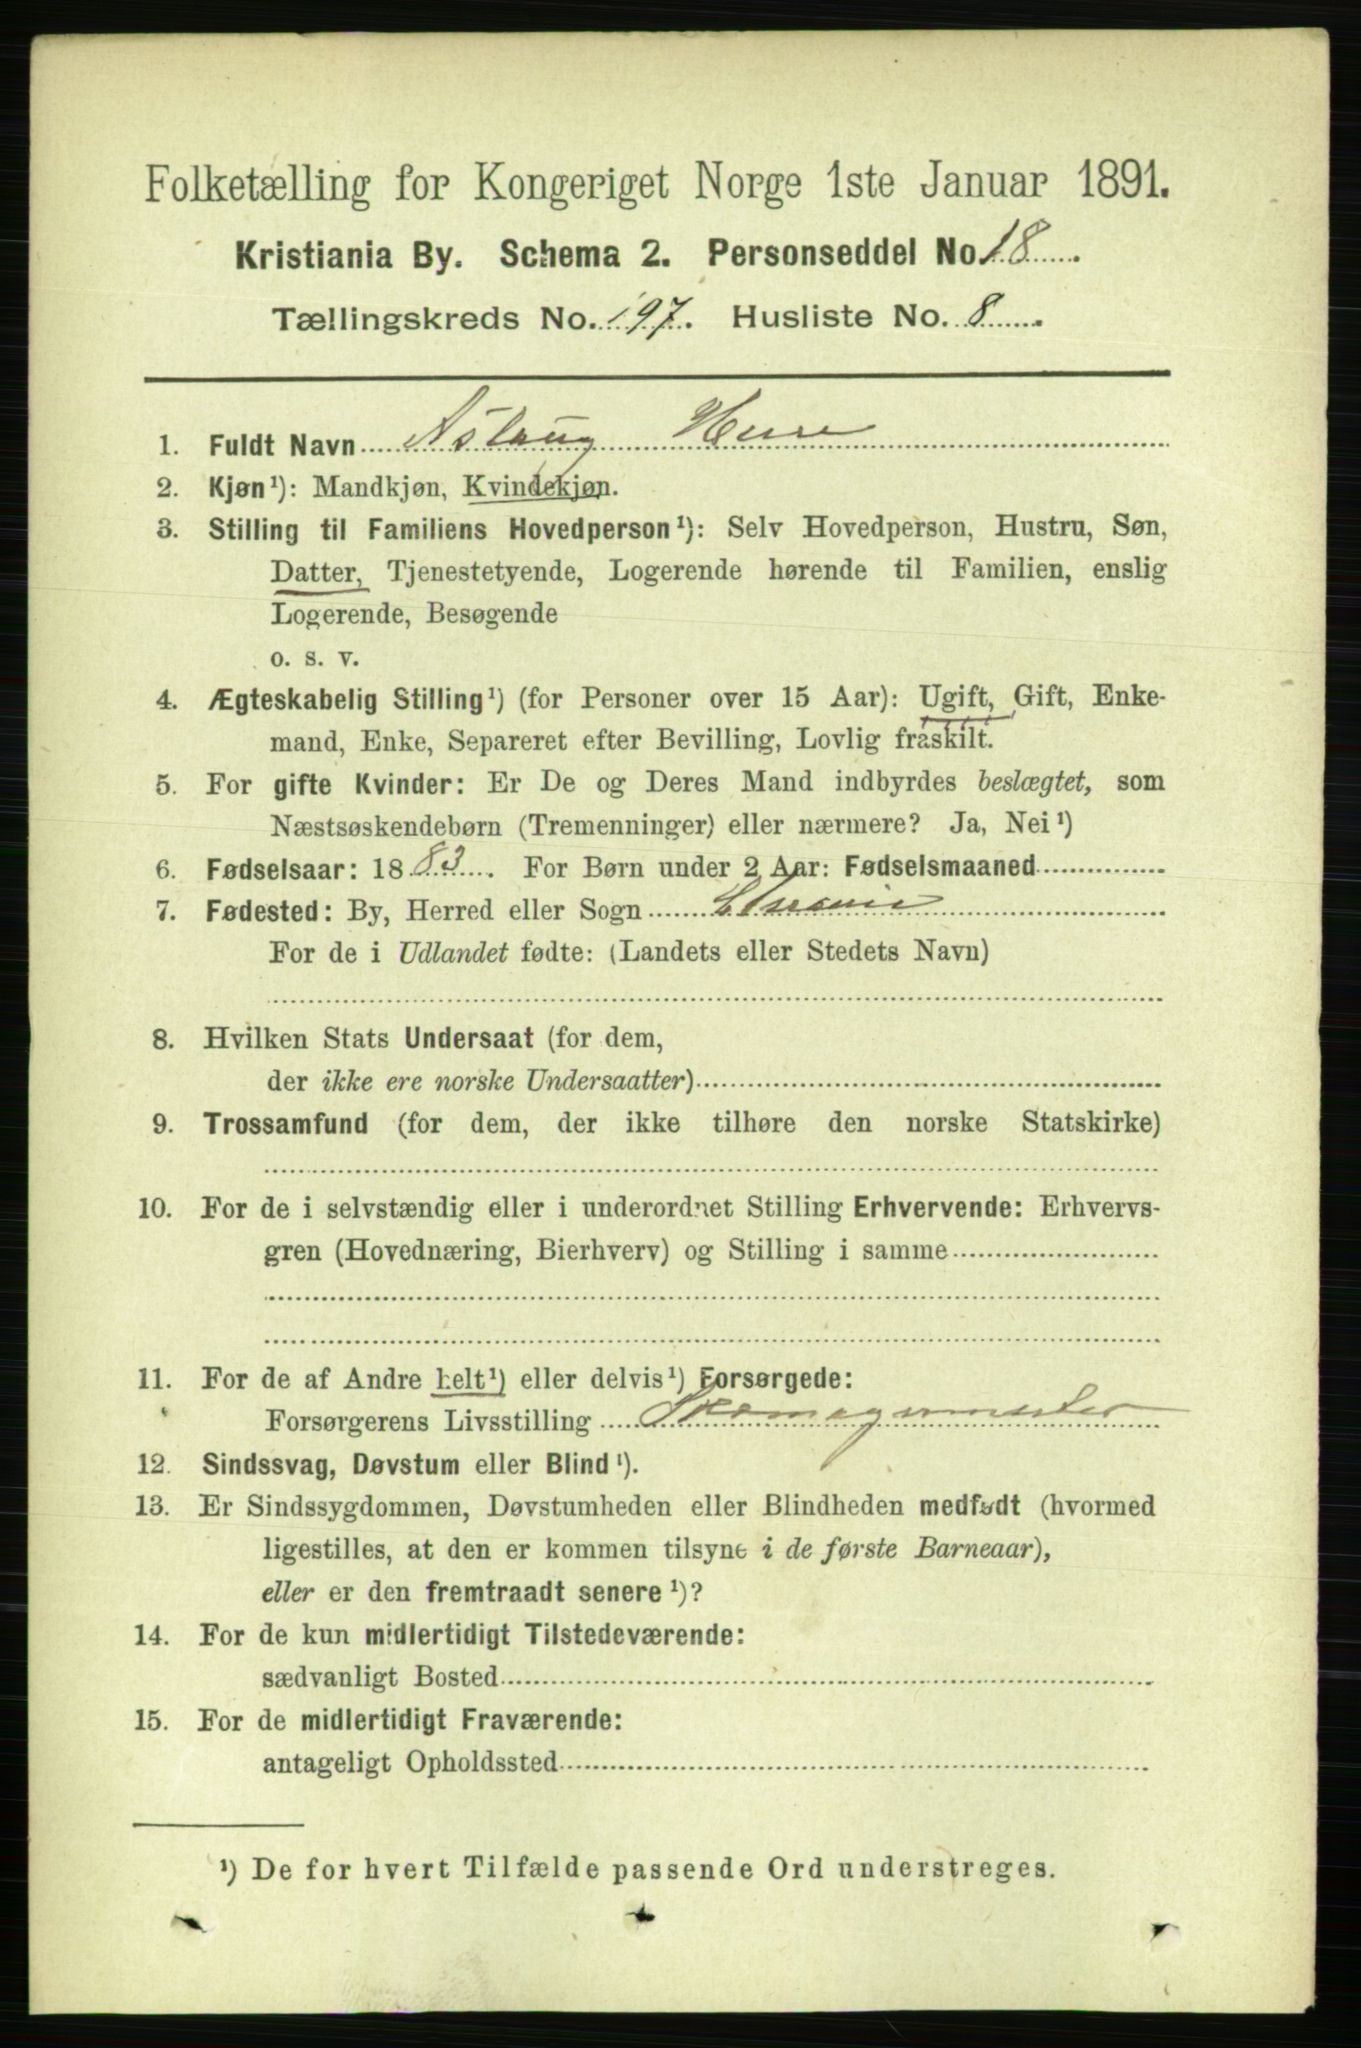 Folketælling for Kongeriget Norge 1ste Januar 1891.
Kristiania By. Schema 2. Personseddel No. 18
Tællingskreds No. 197. Husliste No. 8
1. Fuldt Navn Aslaug
2. Kjøn¹): Mandkjøn, Kvindekjøn.
3. Stilling til Familiens Hovedperson¹): Selv Hovedperson, Hustru, Søn,
Datter, Tjenestetyende, Logerende hørende til Familien, enslig
Logerende, Besøgende
o. s. v.
4. Ægteskabelig Stilling¹) (for Personer over 15 Aar): Ugift, Gift, Enke-
mand, Enke, Separeret efter Bevilling, Lovlig fraskilt.
5. For gifte Kvinder: Er De og Deres Mand indbyrdes beslægtet, som
Næstsøskendebørn (Tremenninger) eller nærmere? Ja, Nei¹)
6. Fødselsaar: 1883. For Børn under 2 Aar: Fødselsmaaned
7. Fødested: By, Herred eller Sogn
For de i Udlandet fødte: (Landets eller Stedets Navn)
8. Hvilken Stats Undersaat (for dem,
der ikke ere norske Undersaatter)
9. Trossamfund (for dem, der ikke tilhøre den norske Statskirke)
10. For de i selvstændig eller i underordnet Stilling Erhvervende: Erhvervs-
gren (Hovednæring, Bierhverv) og Stilling i samme
11. For de af Andre helt¹) eller delvis¹) Forsørgede:
Forsørgerens Livsstilling Skomagermester
12. Sindssvag, Døvstum eller Blind¹).
13. Er Sindssygdommen, Døvstumheden eller Blindheden medfødt (hvormed
ligestilles, at den er kommen tilsyne i de første Barneaar),
eller er den fremtraadt senere¹)?
14. For de kun midlertidigt Tilstedeværende:
sædvanligt Bosted
15. For de midlertidigt Fraværende:
antageligt Opholdssted
¹) De for hvert Tilfælde passende Ord understreges.